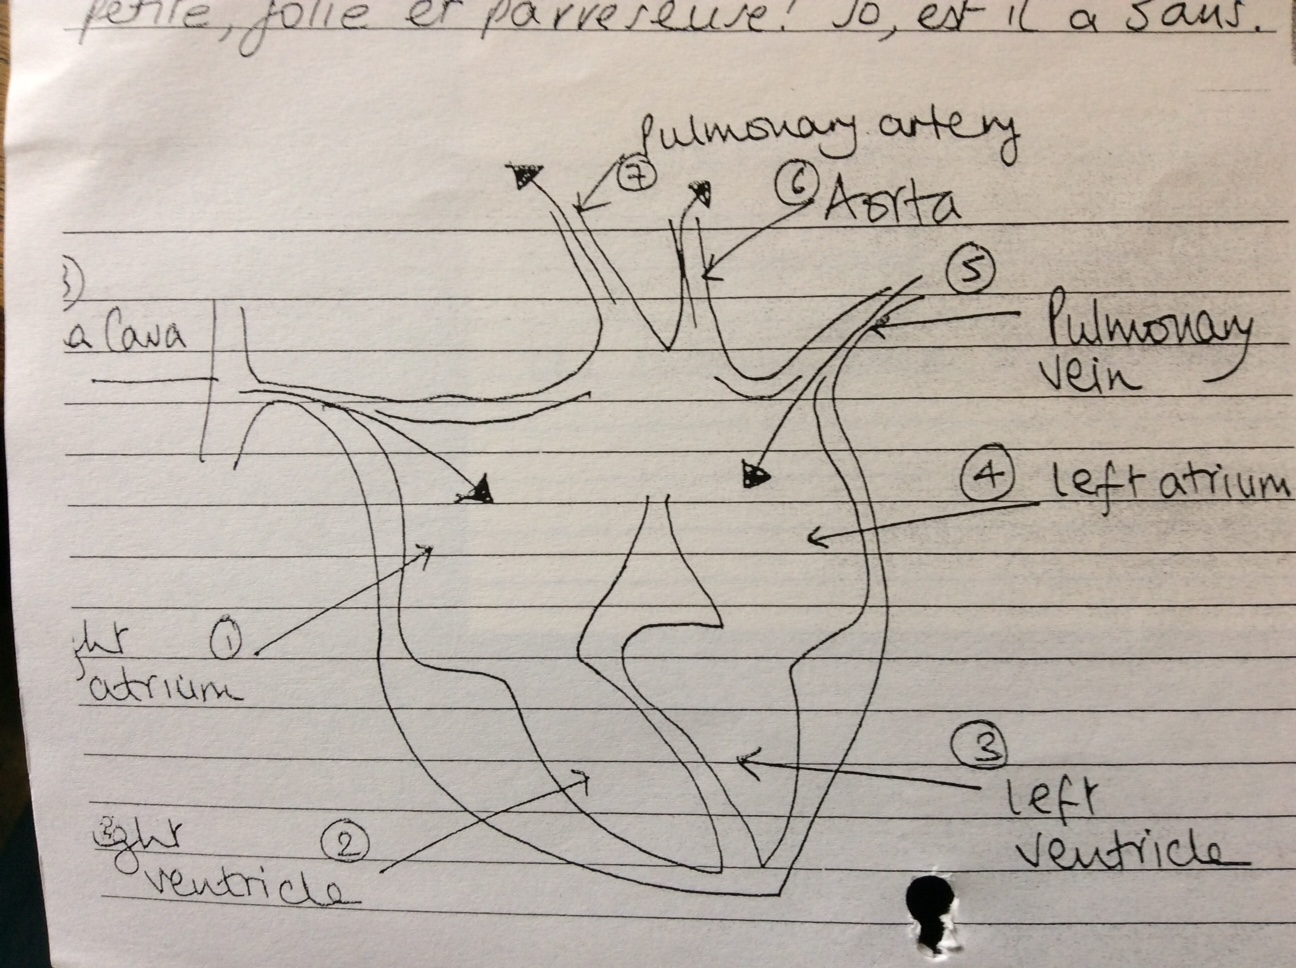 petite, jolie et parreseuse! Jo, est il a 5 ans.
Pulmonary artery
7
6 Aorta
5
Pulmonary
vein
a Cava
4 left atrium
1
ght
atrium
3
left
ventricle
2
ght
ventricle